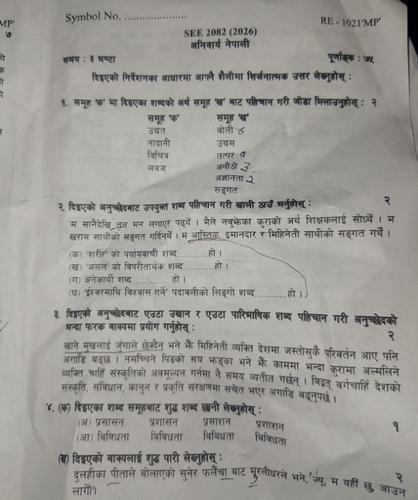 Symbol No. ........................
RE - 1021'MP'
MP'
७
SEE 2082 (2026)
अनिवार्य नेपाली
समय : ३ घण्टा
पूर्णाङ्क : ७५
दिइएको निर्देशनका आधारमा आफ्नै शैलीमा सिर्जनात्मक उत्तर लेख्नुहोस् :
१. समूह 'क' मा दिइएका शब्दको अर्थ समूह 'ख' बाट पहिचान गरी जोडा मिलाउनुहोस् : २
समूह 'क' समूह 'ख'
उद्यत बोली
नादानी उद्यम
विचित्र तत्पर
लवज अनौठो 3
अज्ञानता 2
सङ्गत
२. दिइएको अनुच्छेदबाट उपयुक्त शब्द पहिचान गरी खाली ठाउँ भर्नुहोस् : २
म सानैदेखि तन मन लगाएर पढ्थेँ । मैले नबुझेका कुराको अर्थ शिक्षकलाई सोध्थेँ । म
खराब साथीको सङ्गत गर्दिनथेँ । म आस्तिक, इमानदार र मिहिनेती साथीको सङ्गत गर्थेँ ।
(क) 'शरीर' को पर्यायवाची शब्द ............ हो ।
(ख) 'असल' को विपरीतार्थक शब्द ............ हो ।
(ग) अनेकार्थी शब्द ............ हो ।
(घ) 'ईश्वरमाथि विश्वास गर्ने' पदावलीको सिङ्गो शब्द ............ हो ।
३. दिइएको अनुच्छेदबाट एउटा उखान र एउटा पारिभाषिक शब्द पहिचान गरी अनुच्छेदको
भन्दा फरक वाक्यमा प्रयोग गर्नुहोस् : २
खाने मुखलाई जुँगाले छेक्दैन भने झैँ मिहिनेती व्यक्ति देशमा जस्तोसुकै परिवर्तन आए पनि
अगाडि बढ्छ । नमच्चिने पिङको सय झड्का भने झैँ काममा भन्दा कुरामा अल्मलिने
व्यक्ति चाहिँ संस्कृतिको अवमूल्यन गर्नमा नै समय व्यतीत गर्छन् । विद्वत् वर्गचाहिँ देशको
संस्कृति, संविधान, कानुन र प्रकृति संरक्षणमा सचेत भएर अगाडि बढ्नुपर्छ ।
४. (क) दिइएका शब्द समूहबाट शुद्ध शब्द छानी लेख्नुहोस् : १
(अ) प्रसासन प्रशासन प्रसाशन प्रशाशन
(आ) बिबिधता विविधता विबिधता बिविधता
(ख) दिइएको वाक्यलाई शुद्ध पारी लेख्नुहोस् : २
दुलहीका पीताले बोलाएको सुनेर फलैँचा बाट मूरलीधरले भने, 'ज्यु, म यहीँ छु, आउन
लागेँ'।